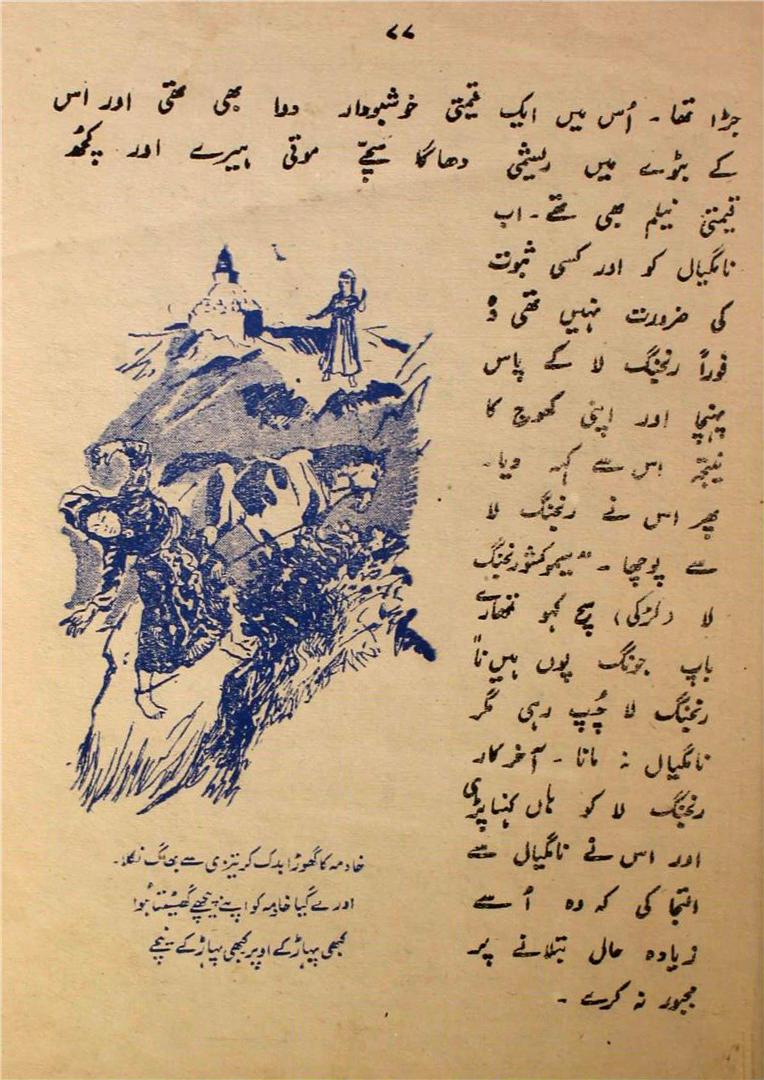 ۷۷
جڑا تھا ۔ اُس میں ایک قیمتی خوشبودار دوا بھی تھی اور اس
کے بٹوے میں ریشمی دھاگا سچّے موتی ہیرے اور کچھ
قیمتی نیلم بھی تھے ۔ اب
نامگیال کو اور کسی ثبوت
کی ضرورت نہیں تھی وہ
فوراً رنجنگ لا کے پاس
پہنچا اور اپنی کھوج کا
نتیجہ اس سے کہہ دیا ۔
پھر اس نے رنجنگ لا
سے پوچھا ۔ "سیموکشورنجنگ
لا (لڑکی) سچ کہو تمھارے
باپ جونگ پوں ہیں نا"
رنجنگ لا چُپ رہی مگر
نامگیال نہ مانا ۔ آخر کار
رنجنگ لا کو ہاں کہنا پڑی
اور اس نے نامگیال سے
التجا کی کہ وہ اُسے
زیادہ حال بتلانے پر
مجبور نہ کرے ۔
خادمہ کا گھوڑا بدک کر تیزی سے بھاگ نکلا۔
اور لے گیا خادمہ کو اپنے پیچھے گھسیٹتا ہُوا
کبھی پہاڑ کے اوپر کبھی پہاڑ کے نیچے